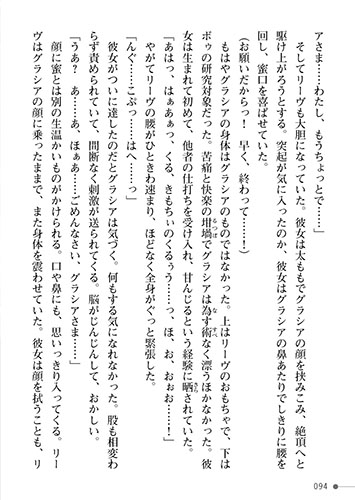 アさま……わたし、もうちょっとで……」
　そしてリーヴも大胆になっていた。彼女は太ももでグラシアの顔を挟みこみ、絶頂へと
駆け上がろうとする。突起が気に入ったのか、彼女はグラシアの鼻あたりでしきりに腰を
回し、蜜口を喜ばせていた。
（お願いだからっ！　早く、終わって……！）
　もはやグラシアの身体はグラシアのものではなかった。上はリーヴのおもちゃで、下は
ボゥの研究対象だった。苦痛と快楽の坩堝でグラシアは為す術なく漂うほかなかった。彼
るつぼ
な
すべ
女は生まれて初めて、他者の仕打ちを受け入れ、甘んじるという経験に晒されていた。
「あはっ、はぁあぁっ、くる、きもちぃのくるぅう……っ、ほ、お、おぉお……！」
　やがてリーヴの腰がひときわ速まり、ほどなく全身がぐっと緊張した。
「んぐ……こぷっ……はへ……っ」
　彼女がついに達したのだとグラシアは気づく。何もする気になれなかった。股も相変わ
らず責められていて、間断なく刺激が送られてくる。脳がじんじんして、おかしい。
「うあ？　あ……あ、ほぁあ……ごめんなさい、グラシアさま」
　顔に蜜とは別の生温かいものがかけられる。口や鼻にも、思いっきり入ってくる。リー
ヴはグラシアの顔に乗ったままで、また身体を震わせていた。彼女は顔を拭うことも、リ
094